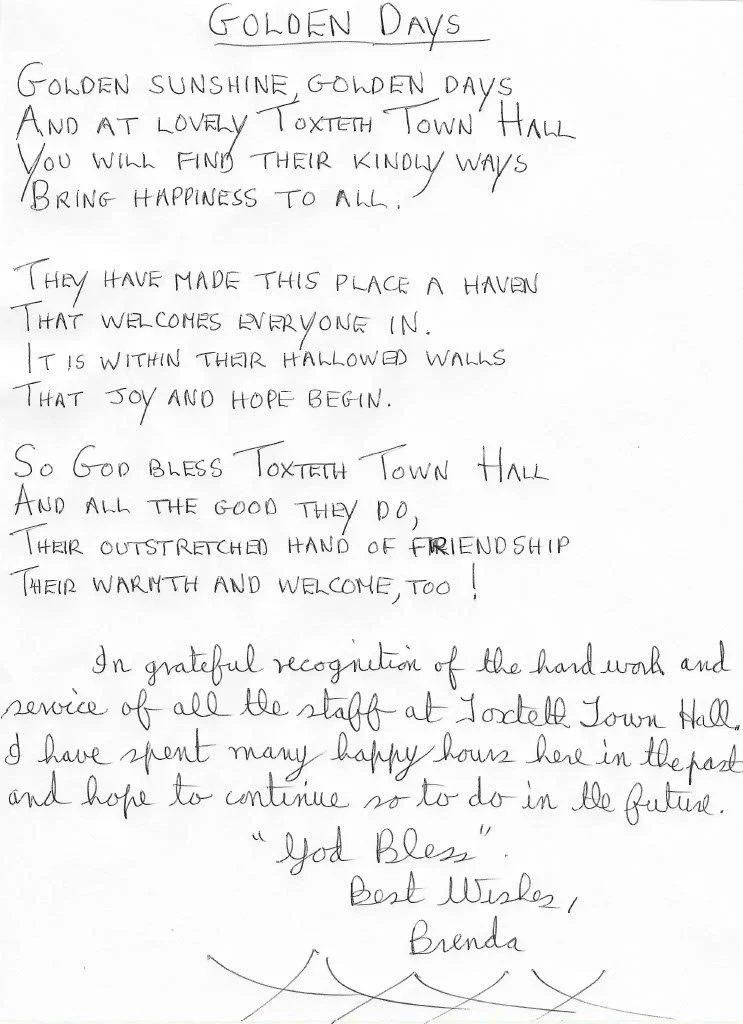 GOLDEN DAYS
GOLDEN SUNSHINE, GOLDEN DAYS
AND AT LOVELY TOXTETH TOWN HALL
YOU WILL FIND THEIR KINDLY WAYS
BRING HAPPINESS TO ALL.
THEY HAVE MADE THIS PLACE A HAVEN
THAT WELCOMES EVERYONE IN.
IT IS WITHIN THEIR HALLOWED WALLS
THAT JOY AND HOPE BEGIN.
SO GOD BLESS TOXTETH TOWN HALL
AND ALL THE GOOD THEY DO,
THEIR OUTSTRETCHED HAND OF FRIENDSHIP
THEIR WARMTH AND WELCOME, TOO !
In grateful recognition of the hard work and
service of all the staff at Toxteth Town Hall.
I have spent many happy hours here in the past
and hope to continue so to do in the future.
"God Bless".
Best Wishes,
Brenda
XXX